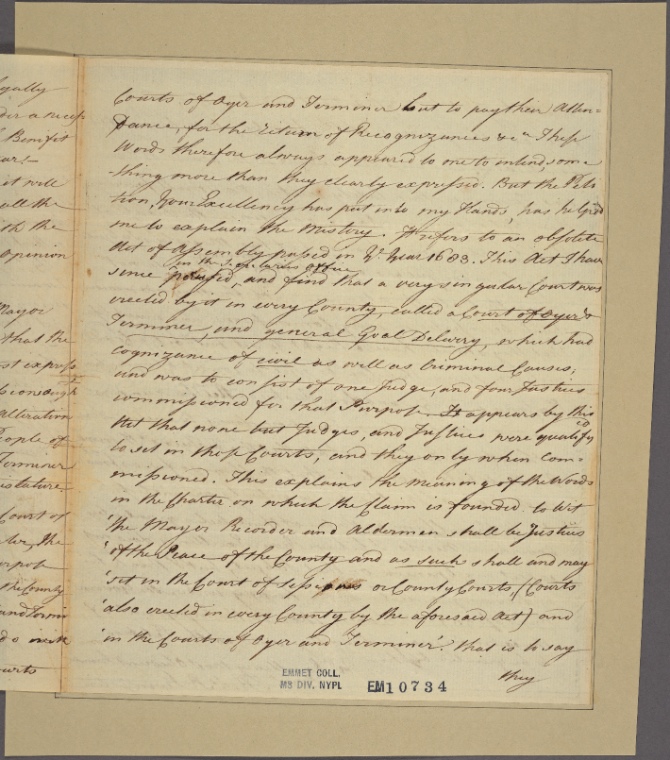 Courts of Oyer and Terminer but to pay their Atten-
dance, for the return of Recognizances &c. These
Words therefore always appeared to me to intend, some
-thing more than they clearly expressed. But the Peti-
tion, Your Excellency has put into my Hands, has helped
me to explain the Mistery. It refers to an obsolete
Act of Assembly passed in Ye Year 1683. This Act I have
in the Secretarys Office
since perused, and find that a very singular Court was
erected by it in every County, called a Court of Oyer &
Terminer, and general Goal Delivery, which had
cognizance of civil as well as Criminal Causes;
and was to consist of one Judge, and four Justices
commissioned for that Purpose. It appears by this
Act that none but Judges, and Justices were qualify'd
to set in those Courts, and they only when com-
missioned. This explains the Meaning of the Words
in the Charter on which the Claim is founded to Wit
'the Mayor Recorder and Aldermen shall be Justices
'of the Peace of the County and as such shall and may
'set in the Court of Sessions or County Courts, (Courts
'also erected in every County by the aforesaid Act) and
'in the Courts of Oyer and Terminer'. that is to say
they
EMMET COLL.
MS DIV. NYPL
EM10734
egally
Benefit
it will
all the
opinion
Mayor
that the
alteration
people of
Terminer
Court of
the County
Courts